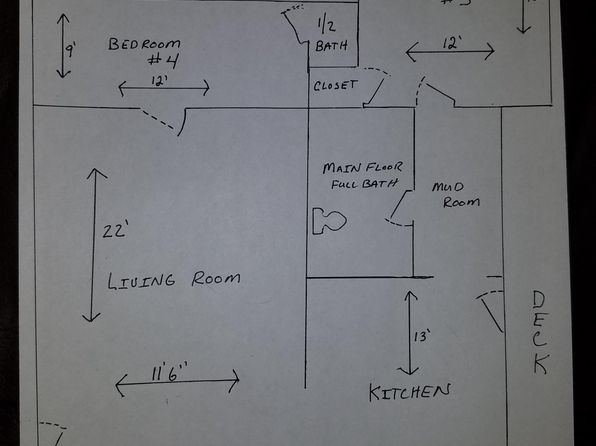 1/2
BATH
#3
9'
BEDROOM
#4
12'
12'
CLOSET
MAIN FLOOR
FULL BATH
MUD
ROOM
22'
LIVING ROOM
DECK
13'
11'6"
KITCHEN